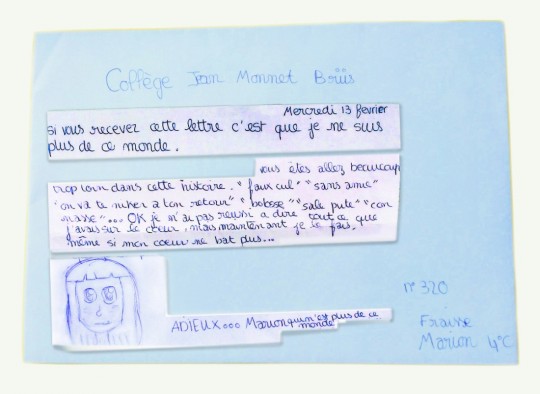 Collège Jean Monnet Briis
Mercredi 13 fevrier
si vous recevez cette lettre c'est que je ne suis
plus de ce monde.
vous êtes allez beaucoup
trop loin dans cette histoire. "faux cul" "sans amie"
"on va te niker a ton retour" "bobosse" "sale pute" "con
nasse"... OK je n'ai pas reussi a dire tout ce que
j'avais sur le cœur, mais maintenant je le fais,
même si mon coeur ne bat plus...
ADIEUX... Marion qui n'est plus de ce
monde
n° 320
Fraisse
Marion 4°C